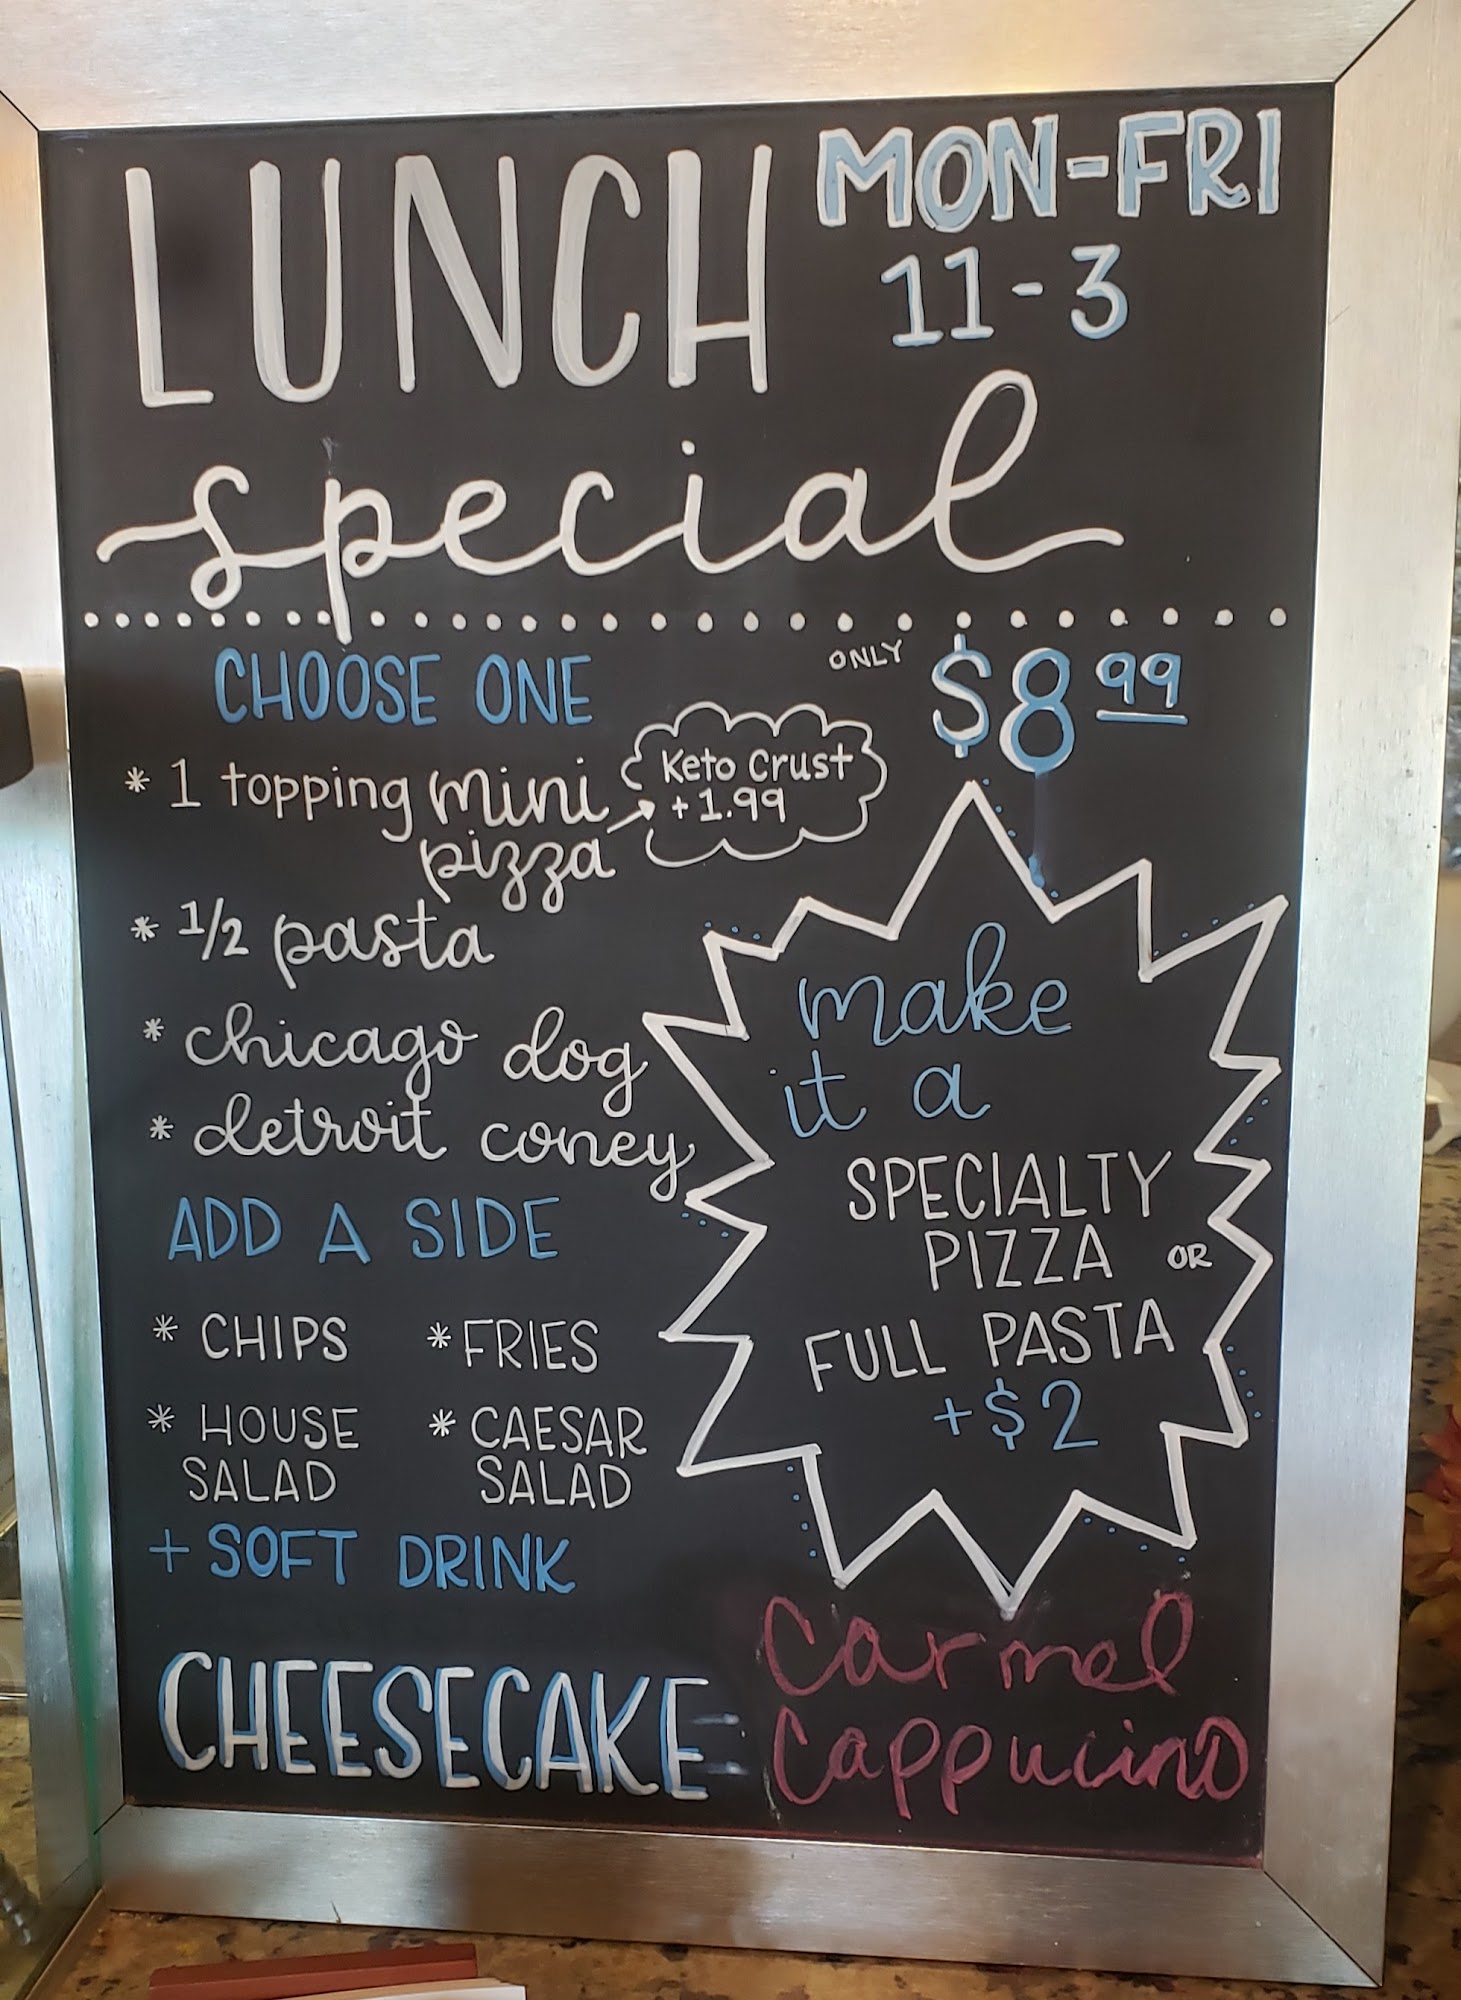 LUNCH
MON-FRI
11-3
special
CHOOSE ONE
ONLY $8 99
* 1 topping mini
pizza
Keto Crust
+ 1.99
* 1/2 pasta
* chicago dog
* detroit coney
ADD A SIDE
* CHIPS
* FRIES
* HOUSE
SALAD
* CAESAR
SALAD
+ SOFT DRINK
make
it a
SPECIALTY
PIZZA OR
FULL PASTA
+$2
CHEESECAKE =
Carmel
Cappucino